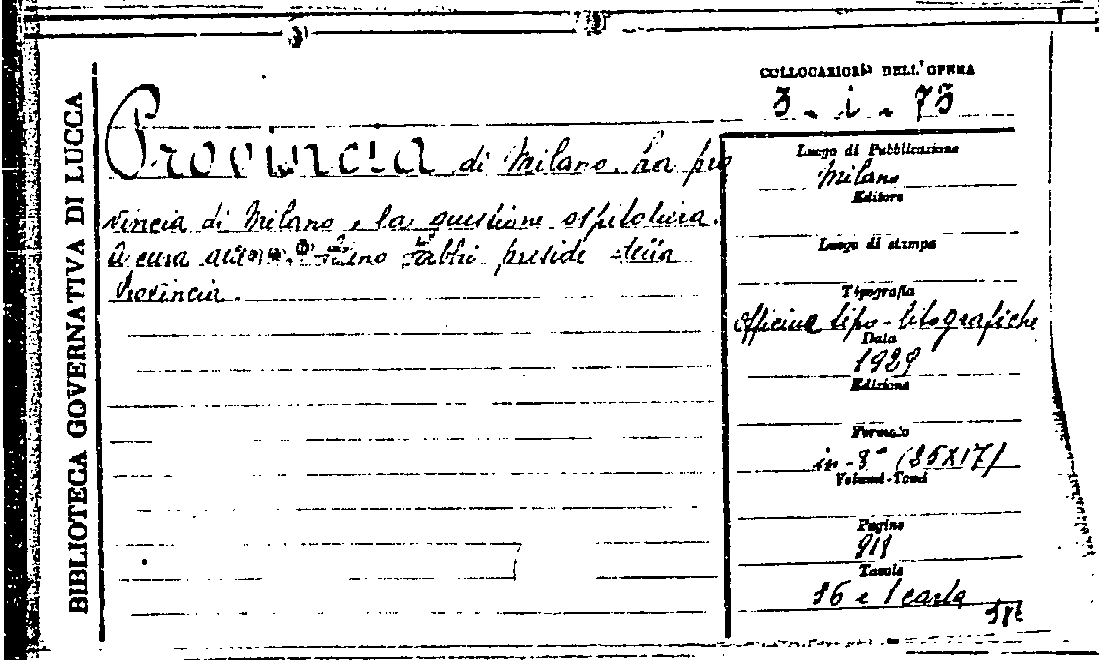 BIBLIOTECA GOVERNATIVA DI LUCCA
COLLOCAZIONE DELL'OPERA
3 - i - 73
Provincia di Milano. La pro
vincia di Milano e la questione ospitaliera.
A cura Fabbri preside della
Provincia.
Luogo di Pubblicazione
Milano
Editore
Luogo di stampa
Tipografia
Officine tipo-litografiche
Data
1929
Edizione
Formato
in-8° (25X17)
Volumi-Tomi
Pagine
Tavole
16 e 1 carta